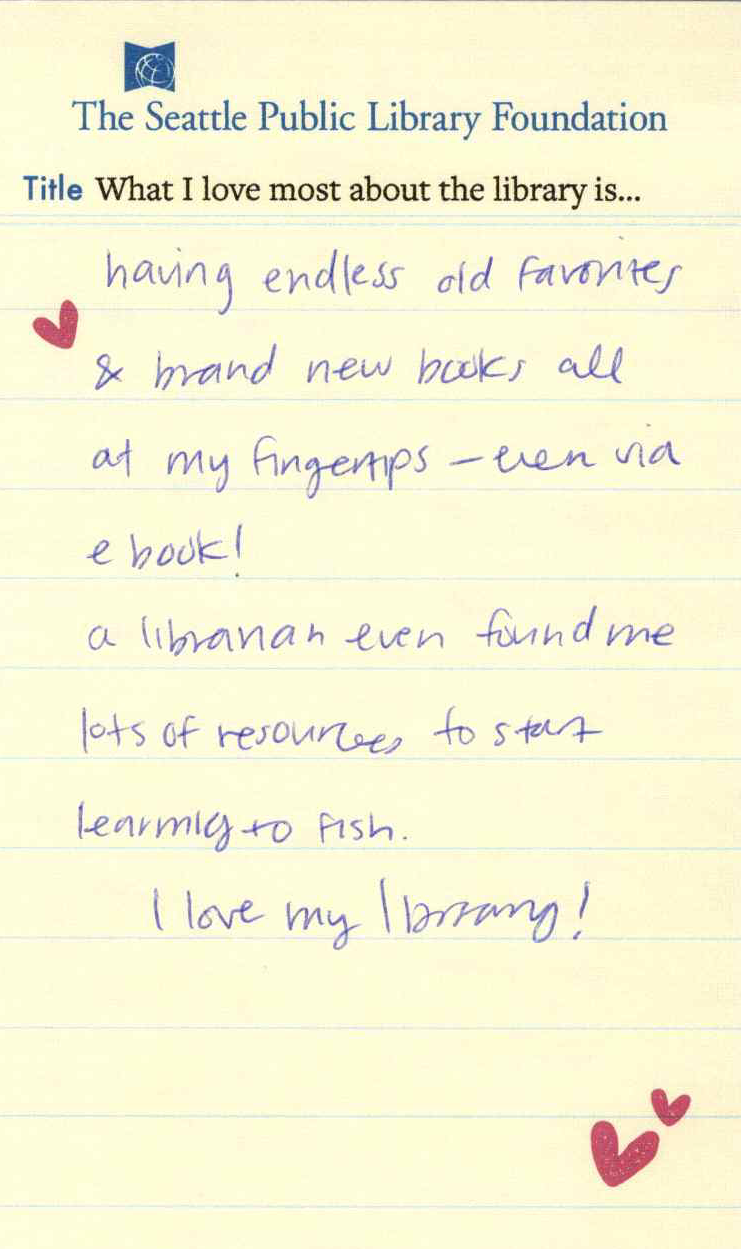 The Seattle Public Library Foundation
Title What I love most about the library is...
having endless old favorites
& brand new books all
at my fingertips – even via
ebook!
a librarian even found me
lots of resources to start
learning to fish.
I love my library!